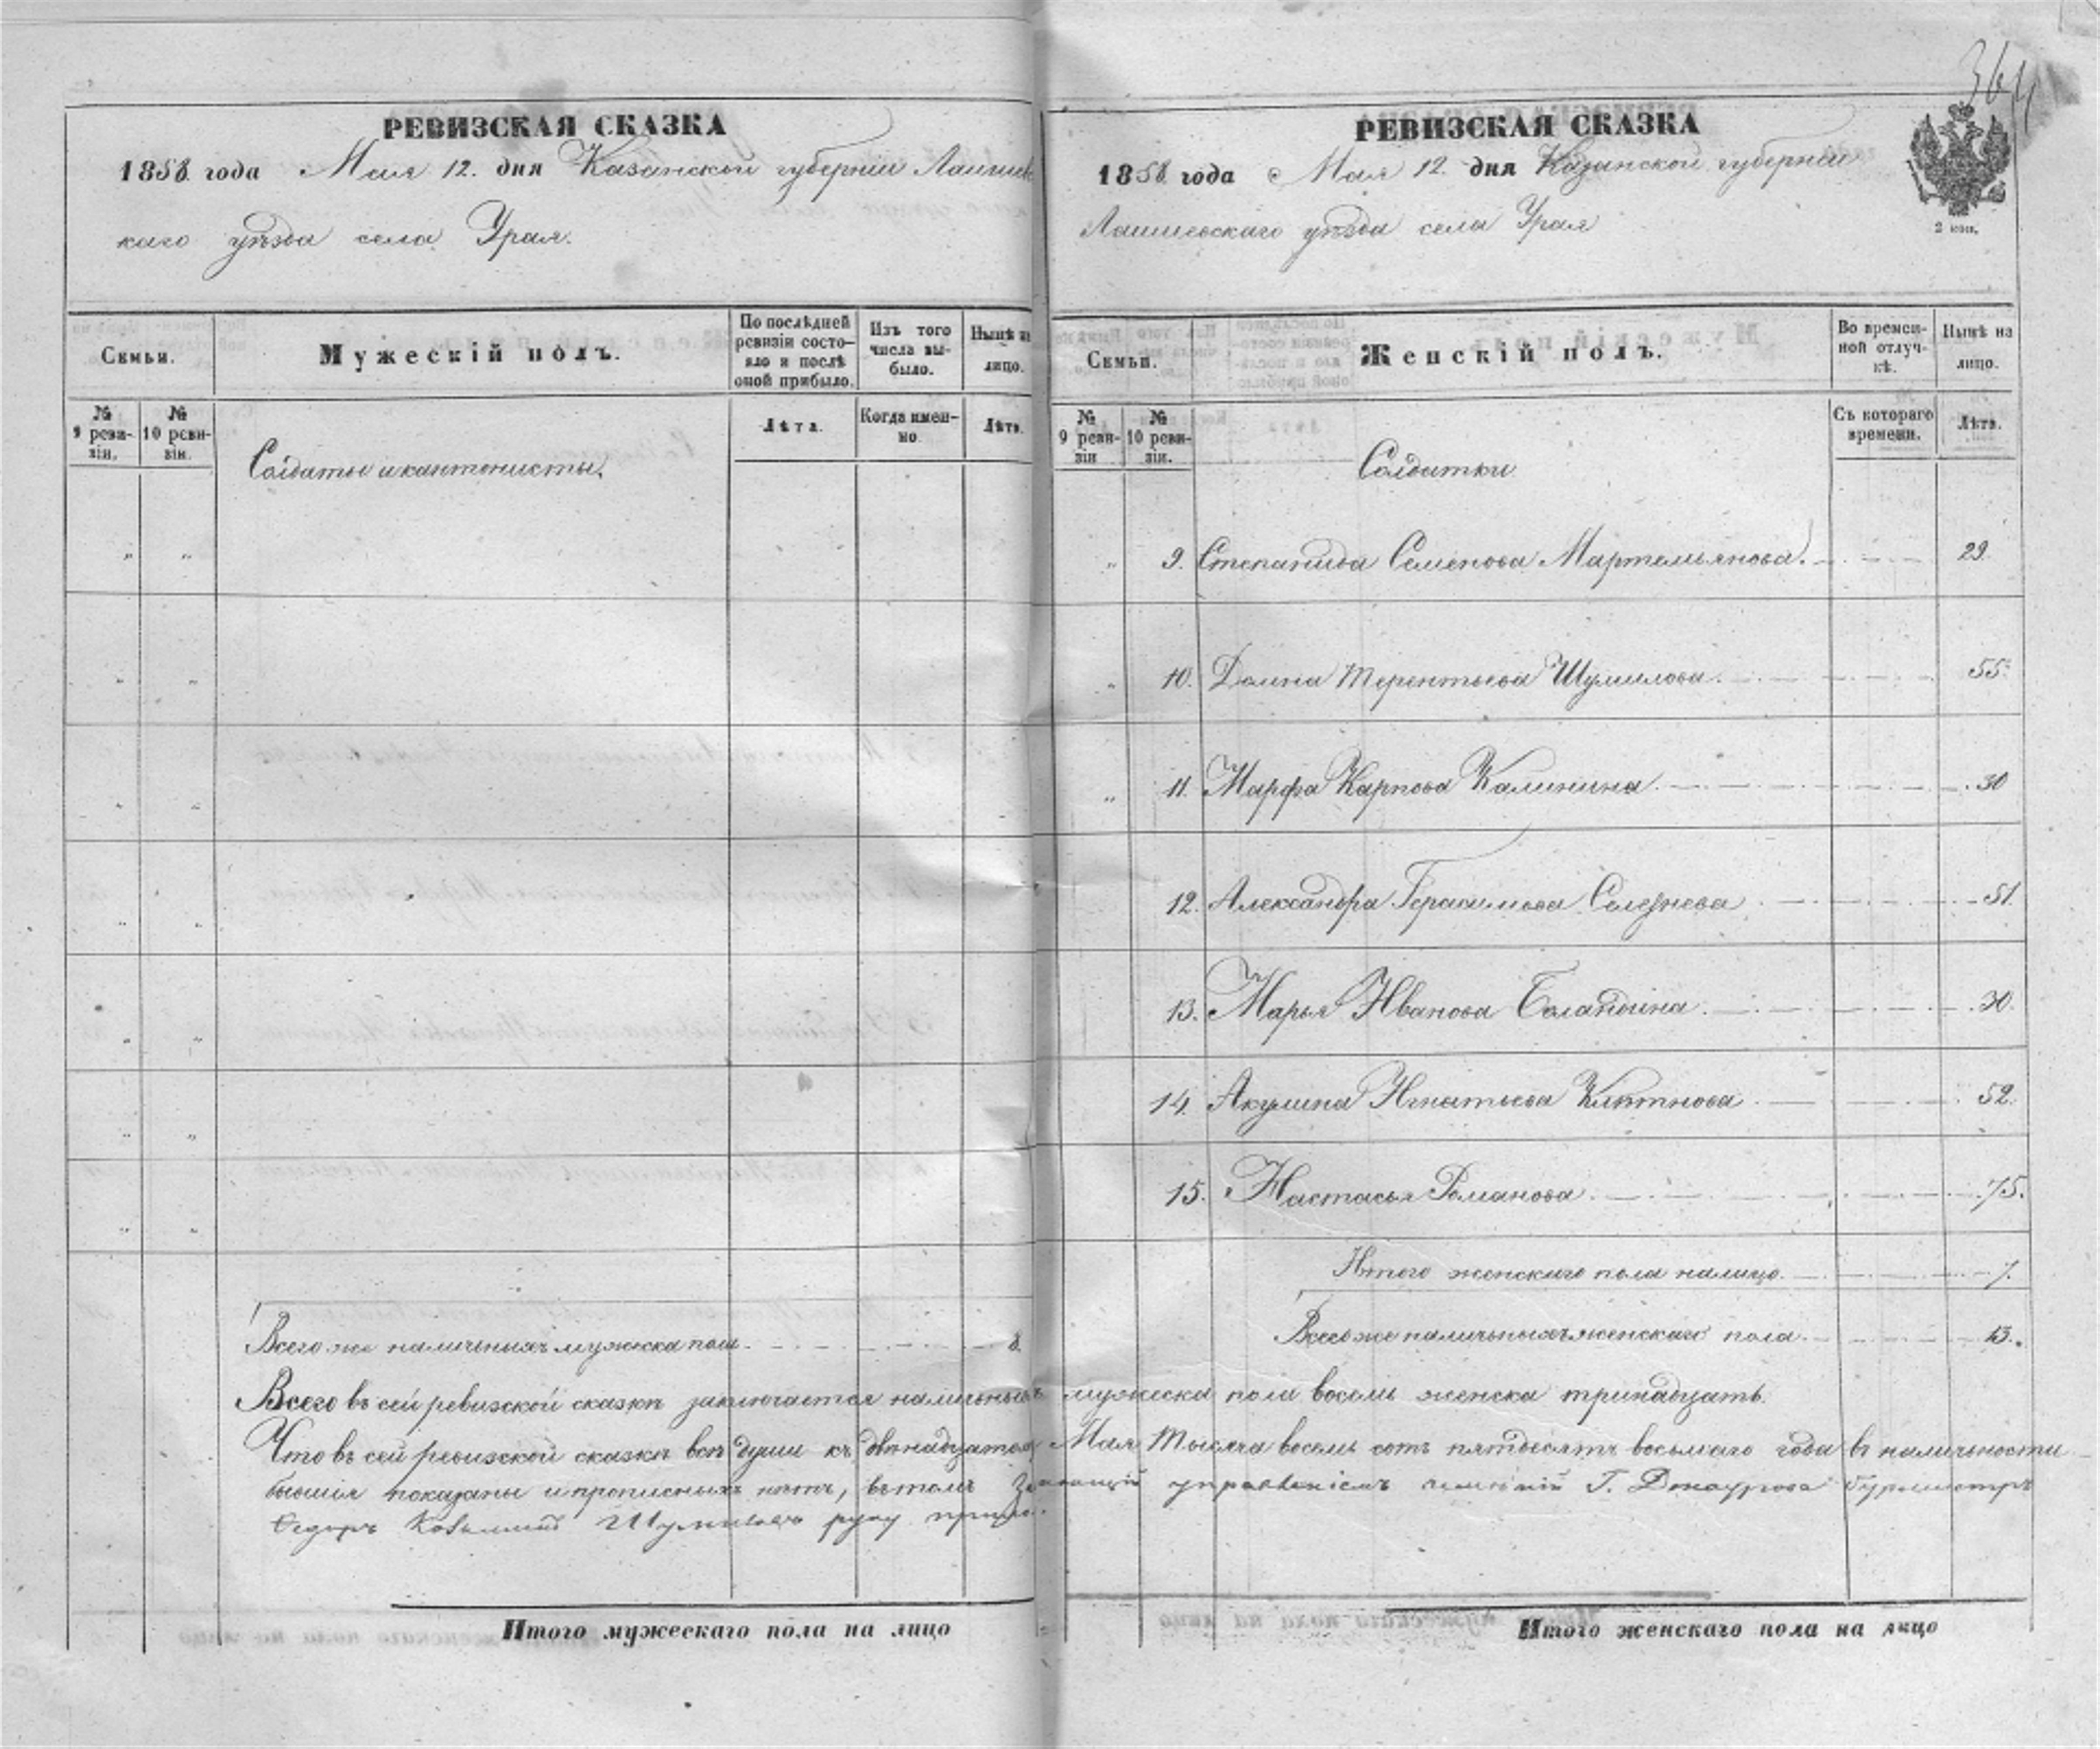 364
РЕВИЗСКАЯ СКАЗКА
1858 года Мая 12. дня Казанской губернии Лаишев
каго уѣзда села Урая.
Семьи.
Мужескій полъ.
По послѣдней ревизіи состояло и послѣ оной прибыло.
Изъ того числа выбыло.
Нынѣ на лицо.
№ 9 ревизіи.
№ 10 ревизіи.
Лѣта.
Когда именно.
Лѣта.
Солдаты и кантонисты.
Всего же наличныхъ мужеска пола 8.
РЕВИЗСКАЯ СКАЗКА
1858 года Мая 12. дня Казанской губерніи
Лаишевскаго уѣзда села Урая
2 коп.
Семьи.
Женскій полъ.
Во временной отлучкѣ.
Нынѣ на лицо.
№ 9 ревизіи
№ 10 ревизіи.
Съ котораго времени.
Лѣта.
Солдатки
9. Степанида Семенова Мартемьянова. 29.
10. Домна Терентьева Шумилова. 55.
11. Марфа Карпова Калинина. 30
12. Александра Герасимова Селезнева 51.
13. Марья Иванова Баландина. 30.
14. Акулина Игнатьева 52.
15. Настасья Романова. 75.
Итого женскаго пола налицо. 7.
Всего же наличныхъ женскаго пола. 13.
Всего въ сей ревизской сказкѣ заключается наличныхъ мужеска пола восемь женска тринадцать.
Что въ сей ревизской сказкѣ всѣ души къ двѣнадцатому Мая тысяча восемь сотъ пятдесятъ восьмаго года въ наличности
бывшія показаны и прописныхъ нѣтъ, въ томъ управленіемъ имѣній Г. бурмистръ
Федоръ Козьминъ Шумиловъ руку
Итого мужескаго пола на лицо
Итого женскаго пола на лицо